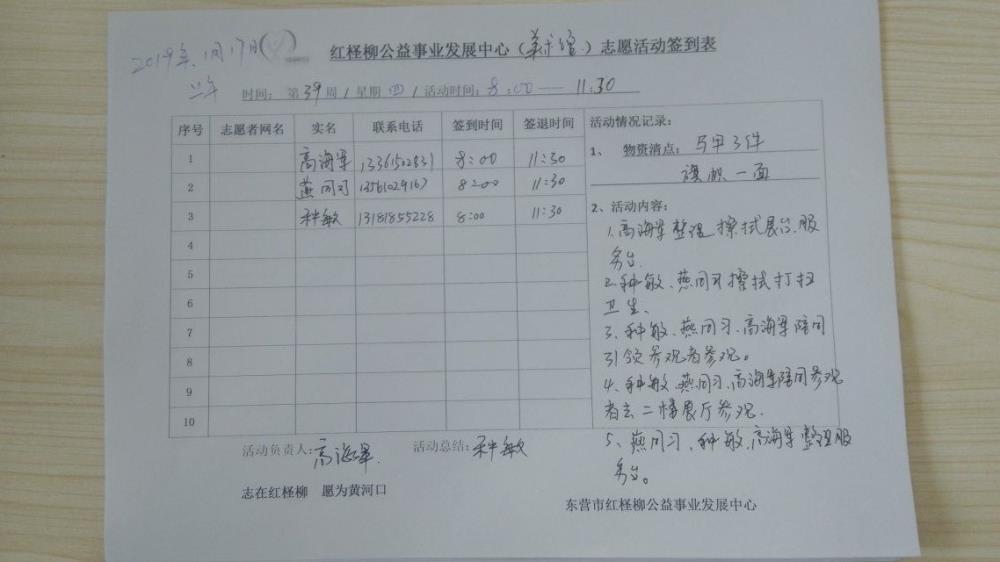 2019年1月17日
红柽柳公益事业发展中心（美术馆）志愿活动签到表
时间：第39周/星期四/活动时间：8:00—11:30
序号 志愿者网名 实名 联系电话 签到时间 签退时间
1 高海军 13361502831 8:00 11:30
2 燕同习 13561029167 8:00 11:30
3 种敏 13181855228 8:00 11:30
4
5
6
7
8
9
10
活动情况记录：
1、物资清点：马甲3件
旗帜一面
2、活动内容：
1.高海军整理擦拭展台、服
务台.
2.种敏、燕同习擦拭打扫
卫生、
3、种敏、燕同习、高海军陪同
引领参观者参观。
4、种敏、燕同习、高海军陪同参观
者去二楼展厅参观.
5、燕同习、种敏、高海军整理服
务台。
活动负责人：高海军 活动总结：种敏
志在红柽柳 愿为黄河口
东营市红柽柳公益事业发展中心